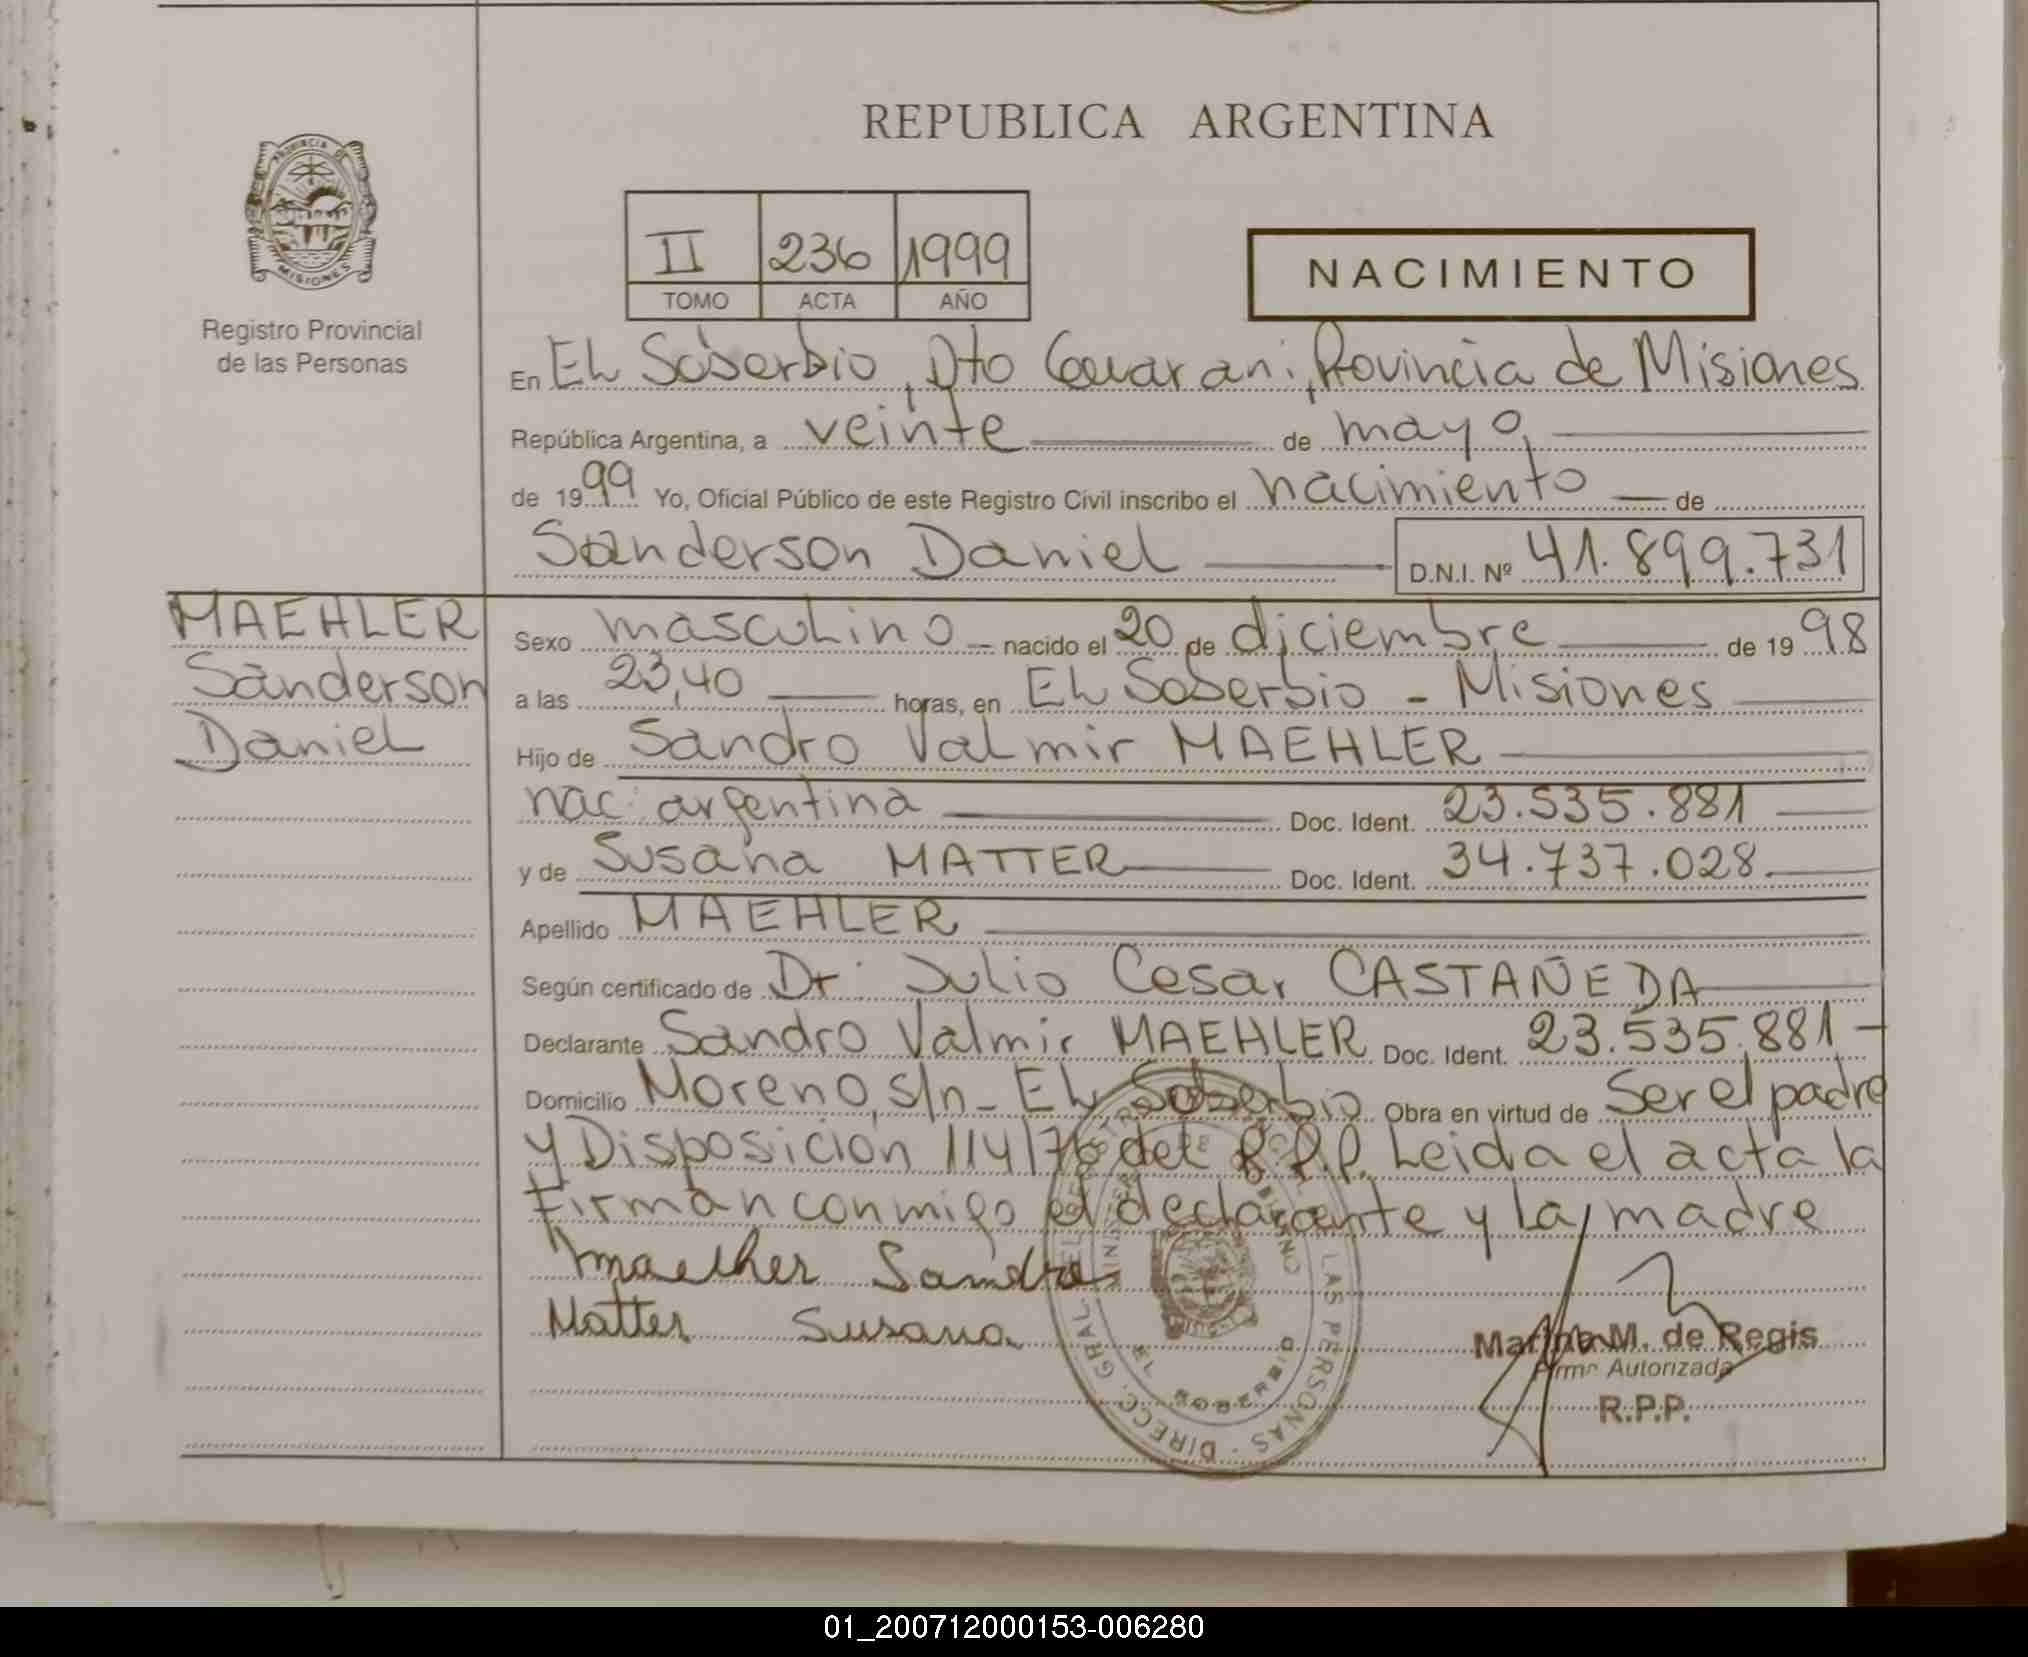 REPUBLICA ARGENTINA
PROVINCIA DE
MISIONES
Registro Provincial
de las Personas
II 236 1999
TOMO ACTA AÑO
NACIMIENTO
En EL Soberbio, Dto Guarani, Provincia de Misiones
República Argentina, a veinte de mayo,
de 1999 Yo, Oficial Público de este Registro Civil inscribo el nacimiento de
Sanderson Daniel D.N.I. Nº 41.899.731
MAEHLER
Sanderson
Daniel
Sexo masculino nacido el 20 de diciembre de 1998
a las 23,40 horas, en EL Soberbio - Misiones
Hijo de Sandro Valmir MAEHLER
nac. argentina Doc. Ident. 23.535.881
y de Susana MATTER Doc. Ident. 34.737.028.
Apellido MAEHLER
Según certificado de Dr. Julio Cesar CASTAÑEDA
Declarante Sandro Valmir MAEHLER Doc. Ident. 23.535.881-
Domicilio Moreno, s/n - EL Soberbio Obra en virtud de Ser el padre
y Disposición 114/76 del R.P.P. Leida el acta la
firman conmigo el declarante y la madre
Maelher Sandro
Matter Susana
Marina M. de Regis
Firma Autorizada
R.P.P.
DIRECC. GRAL. DEL REGISTRO LAS PERSONAS
EL SOBERBIO
MISIONES
01_200712000153-006280